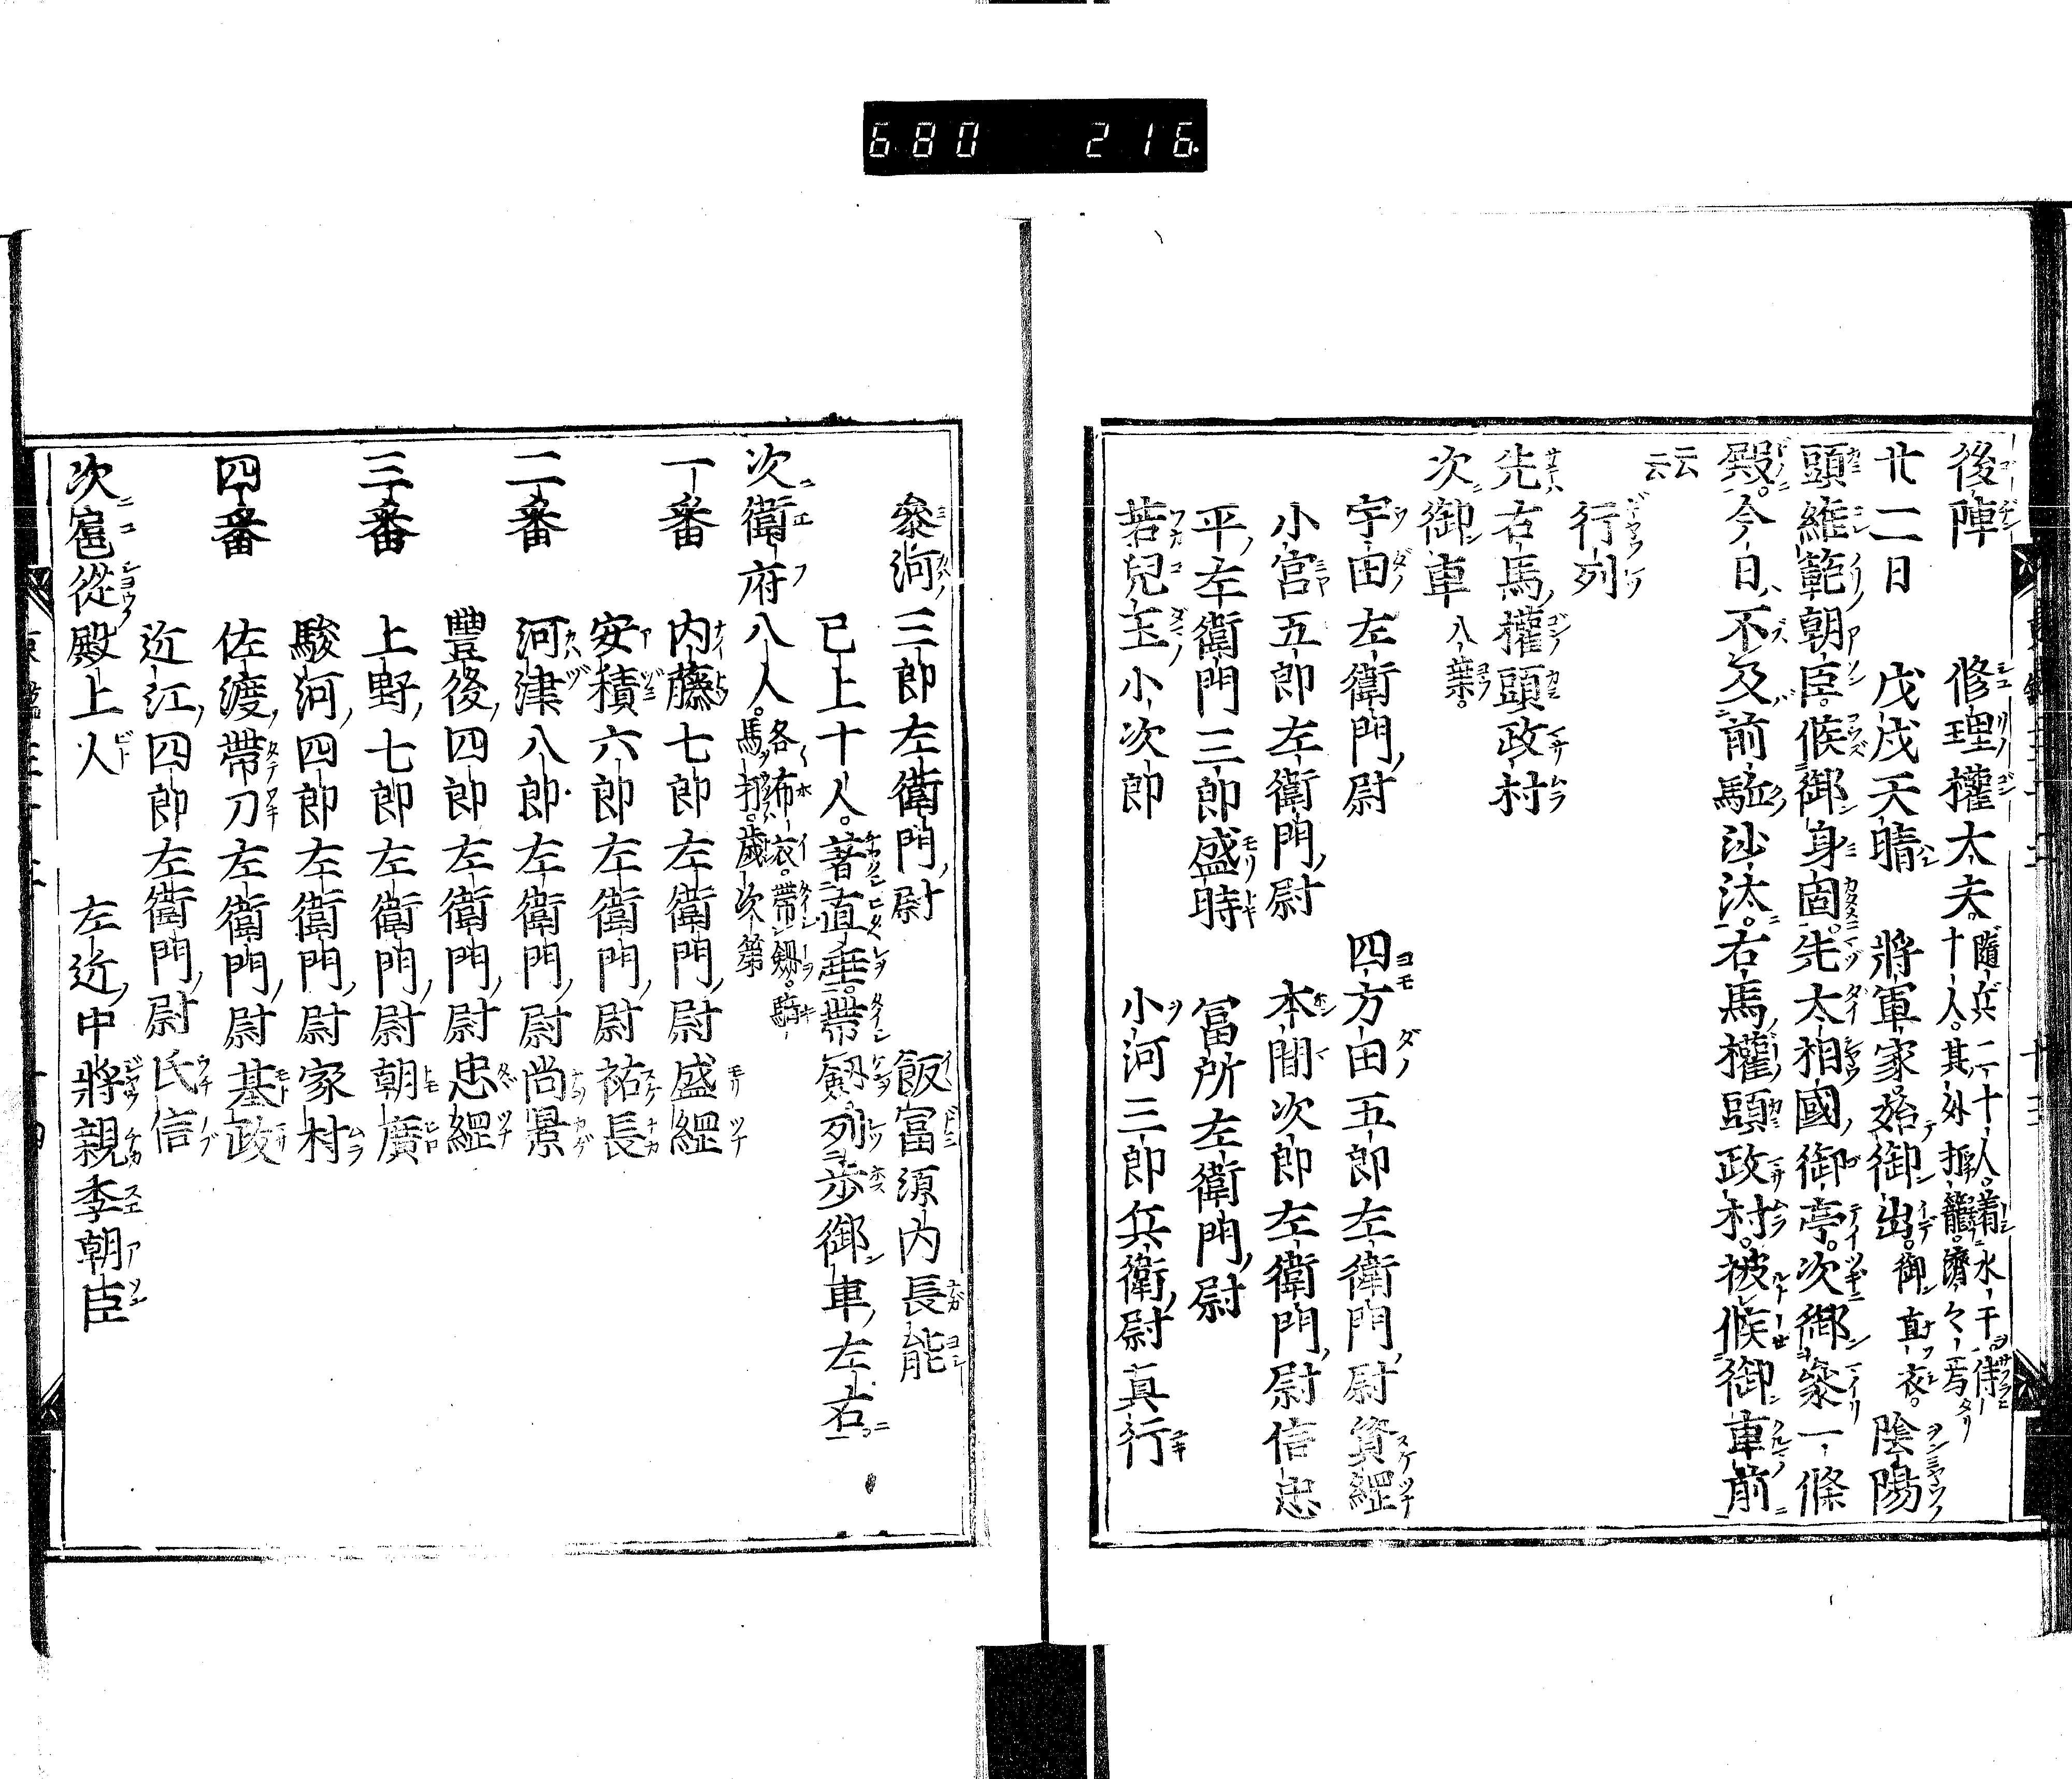 680 216
後陣 修理權太夫。隨兵二十人。着水干。侍
十人。其外打籠。濟々焉
廿二日 戊戌天晴 將軍家始御出。御直衣。陰陽
頭維範朝臣。候御身固。先太相國御亭。次御參一條
殿。今日不及前駈沙汰。右馬權頭政村。被候御車前
云云
行列
先右馬權頭政村
次御車 八葉。
宇田左衛門尉 四方田五郎左衛門尉資經
小宮五郎左衛門尉 本間次郎左衛門尉信忠
平左衛門三郎盛時 冨所左衛門尉
若兒玉小次郎 小河三郎兵衛尉真行
參河三郎左衛門尉 飯冨源内長能
已上十人。著直垂。帶劔。列步御車左右
次衛府八人。各布衣。帶劔。騎
馬打。歲次第
一番 内藤七郎左衛門尉盛經
安積六郎左衛門尉祐長
二番 河津八郎左衛門尉尚景
豐後四郎左衛門尉忠經
三番 上野七郎左衛門尉朝廣
駿河四郎左衛門尉家村
四番 佐渡帶刀左衛門尉基政
近江四郎左衛門尉氏信
次扈從殿上人 左近中將親季朝臣